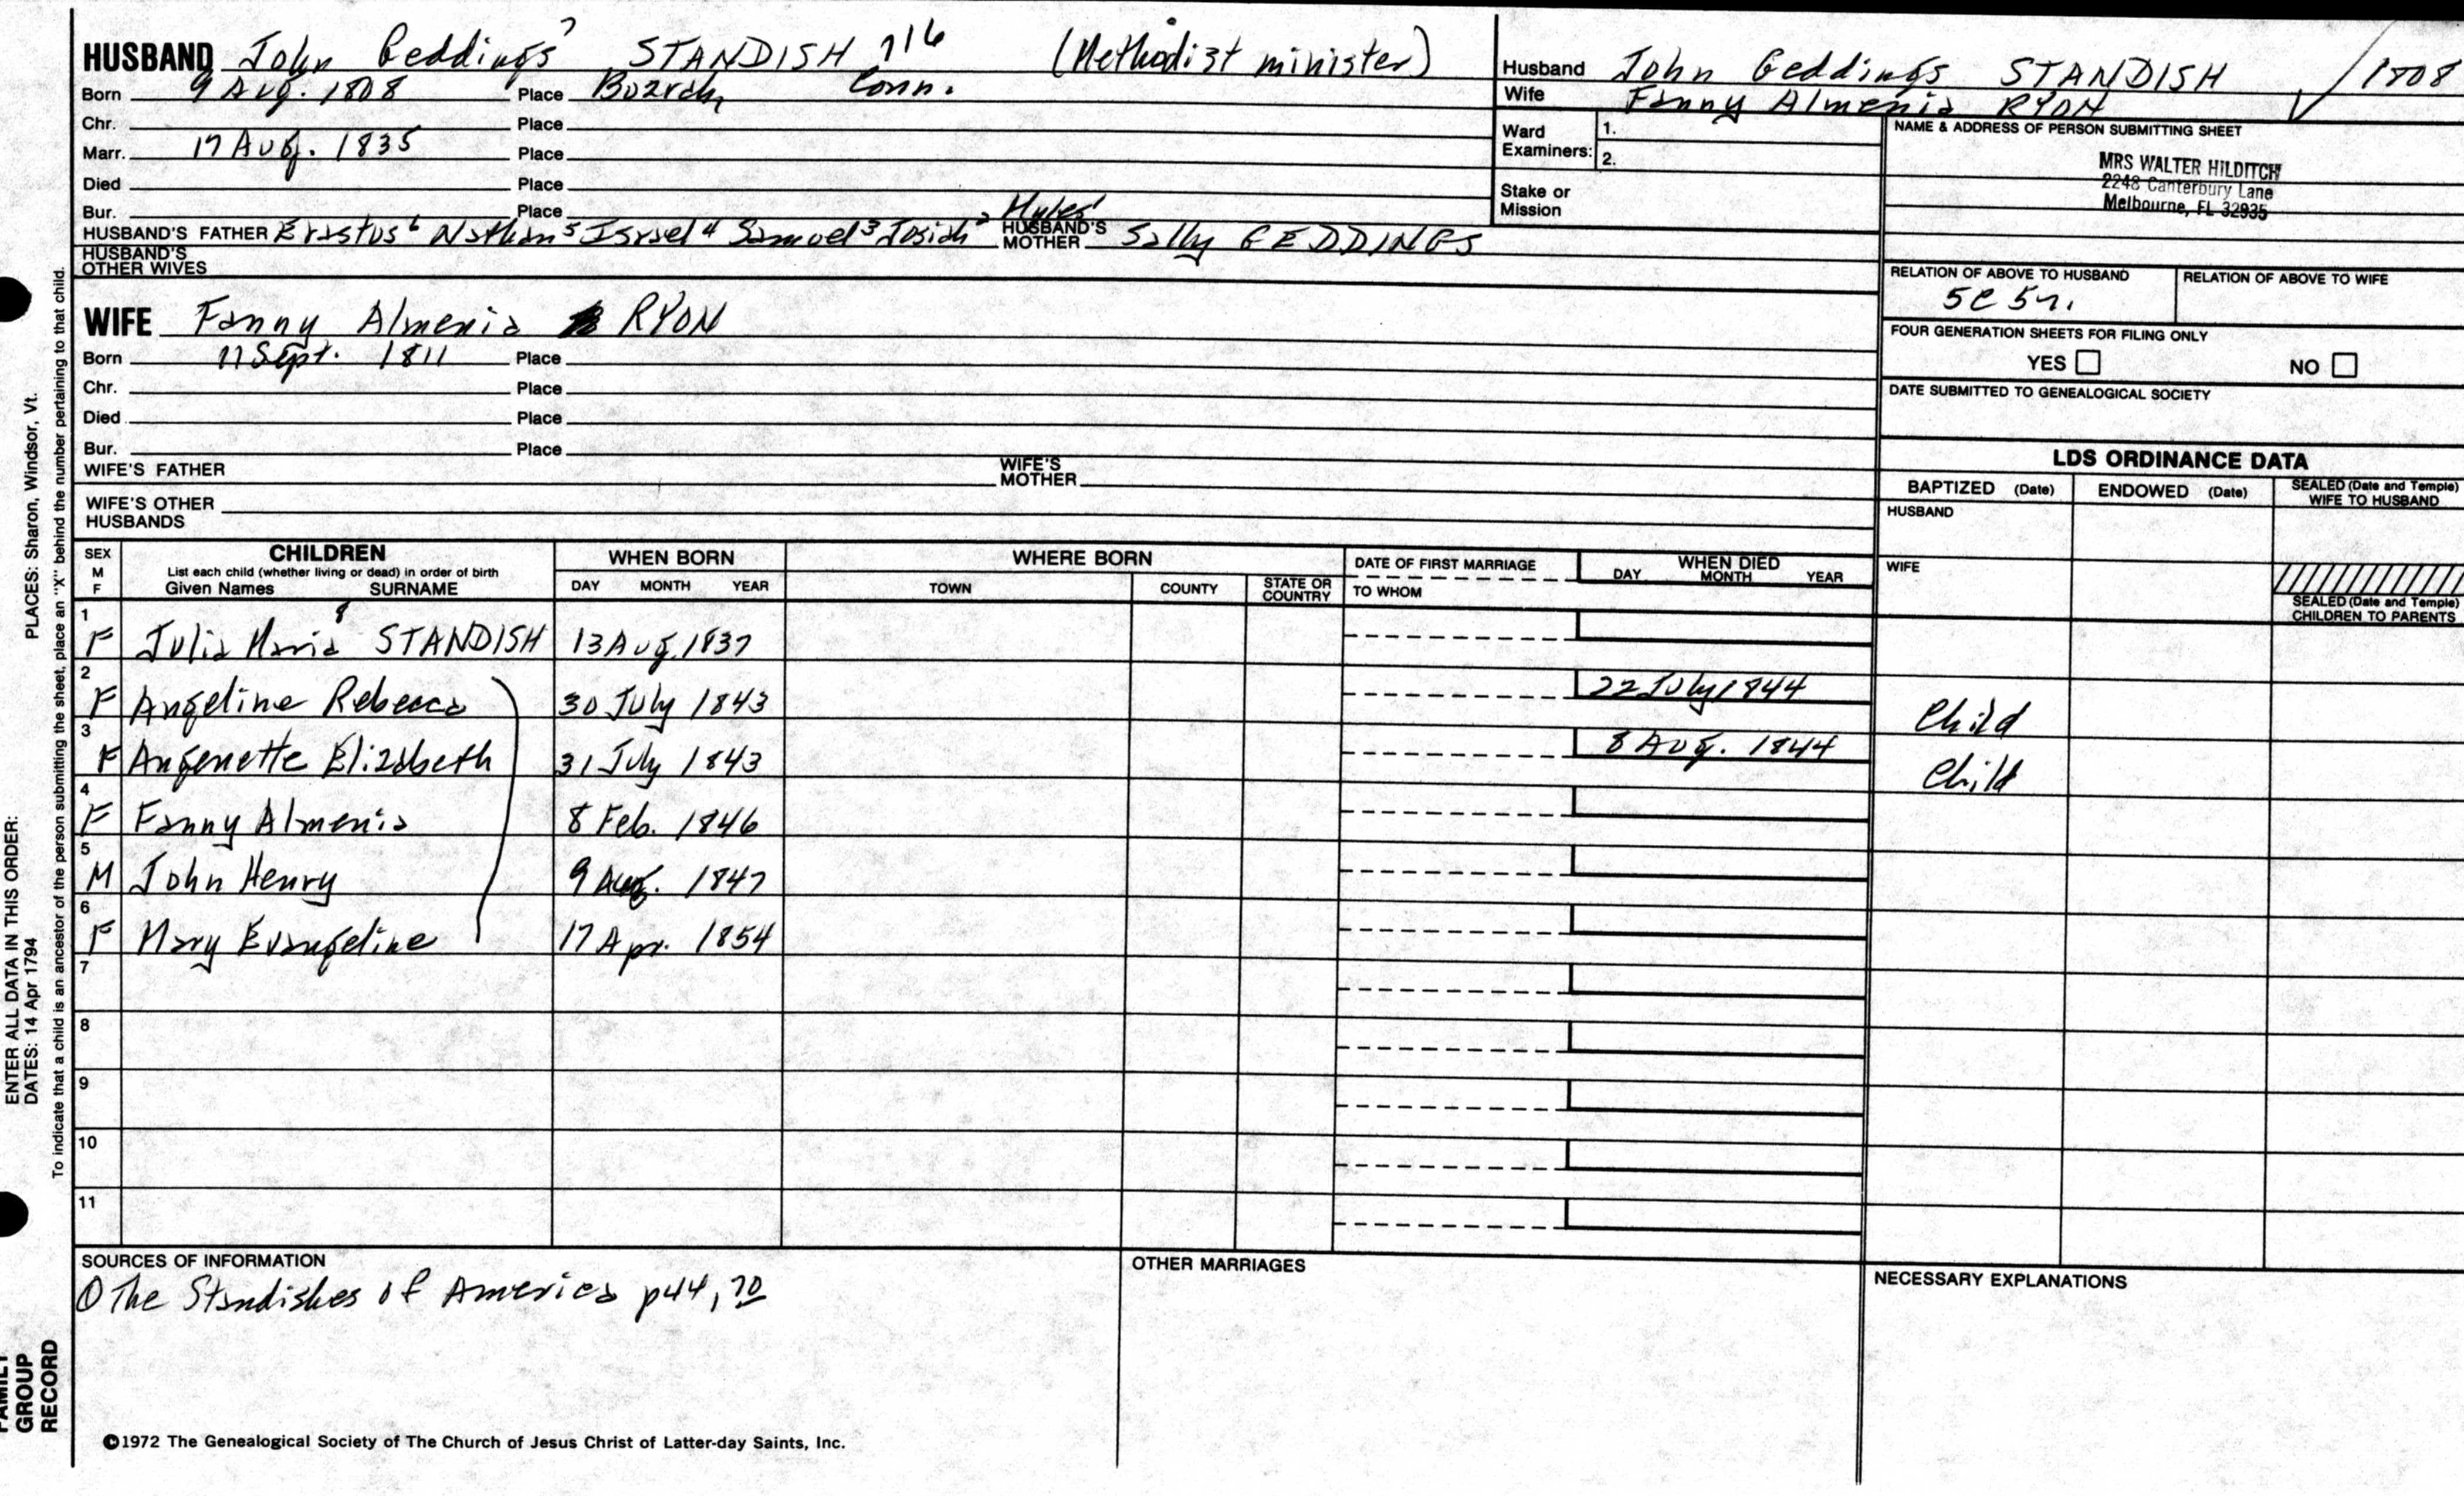 HUSBAND John Geddings 7 STANDISH 716 (Methodist minister)
Born 9 Aug. 1808 Place Bozrah, Conn.
Chr. Place
Marr. 17 Aug. 1835 Place
Died Place
Bur. Place
HUSBAND'S FATHER Erastus 6 Nathan 5 Israel 4 Samuel 3 Josiah 2 Myles 1 HUSBAND'S MOTHER Sally GEDDINGS
HUSBAND'S OTHER WIVES
Husband John Geddings STANDISH 1808
Wife Fanny Almenia RYON
Ward Examiners: 1.
2.
Stake or Mission
NAME & ADDRESS OF PERSON SUBMITTING SHEET
MRS WALTER HILDITCH
2248 Canterbury Lane
Melbourne, FL 32935
RELATION OF ABOVE TO HUSBAND RELATION OF ABOVE TO WIFE
5C 5r.
FOUR GENERATION SHEETS FOR FILING ONLY
YES NO
DATE SUBMITTED TO GENEALOGICAL SOCIETY
WIFE Fanny Almenia RYON
Born 17 Sept. 1811 Place
Chr. Place
Died Place
Bur. Place
WIFE'S FATHER WIFE'S MOTHER
WIFE'S OTHER HUSBANDS
LDS ORDINANCE DATA
BAPTIZED (Date) ENDOWED (Date) SEALED (Date and Temple) WIFE TO HUSBAND
HUSBAND
WIFE
SEALED (Date and Temple) CHILDREN TO PARENTS
SEX M F
CHILDREN
List each child (whether living or dead) in order of birth
Given Names SURNAME
WHEN BORN
DAY MONTH YEAR
WHERE BORN
TOWN COUNTY STATE OR COUNTRY
DATE OF FIRST MARRIAGE
TO WHOM
WHEN DIED
DAY MONTH YEAR
1 F Julia Maria 8 STANDISH 13 Aug. 1837
2 F Angeline Rebecca 30 July 1843 22 July 1844 Child
3 F Angenette Elizabeth 31 July 1843 8 Aug. 1844 Child
4 F Fanny Almenia 8 Feb. 1846
5 M John Henry 9 Aug. 1847
6 F Mary Evangeline 17 Apr. 1854
7
8
9
10
11
SOURCES OF INFORMATION
① The Standishes of America p44, 70
OTHER MARRIAGES
NECESSARY EXPLANATIONS
©1972 The Genealogical Society of The Church of Jesus Christ of Latter-day Saints, Inc.
ENTER ALL DATA IN THIS ORDER:
DATES: 14 Apr 1794 PLACES: Sharon, Windsor, Vt.
To indicate that a child is an ancestor of the person submitting the sheet, place an "X" behind the number pertaining to that child.
FAMILY
GROUP
RECORD